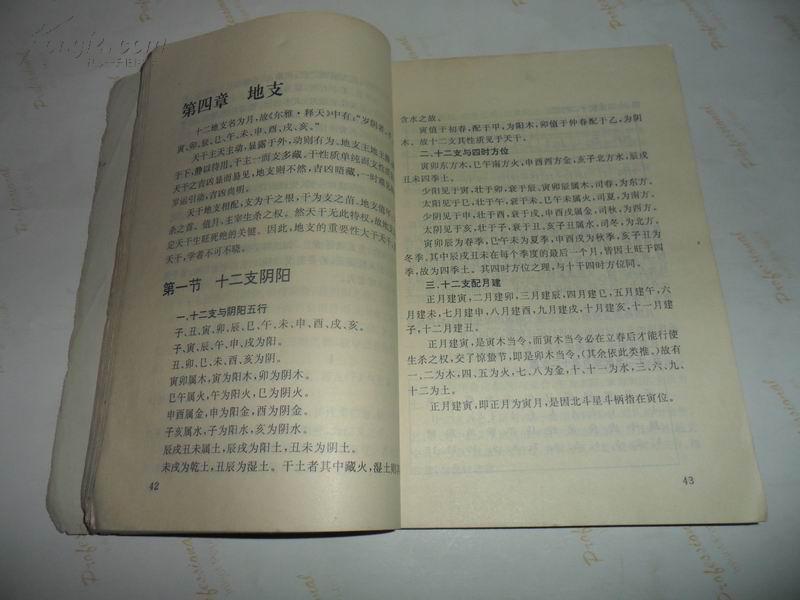 第四章 地支
十二地支名为月，故《尔雅·释天》中有：“岁阴者，
寅、卯、辰、巳、午、未、申、酉、戌、亥。”
天干主天主动，显露于外，动则有为、地支主地主静，
于下，静以待用，干主一而支多藏。干性质单纯而支性质
天干之吉凶显而易见，地支则不然，吉凶暗藏，一时难见
岁运引动，吉凶灾明。
天干地支相配，支为干之根，干为支之苗、地支值年，
杀之首。值月、主宰生杀之权。然天干无此特权，故地支
定天干生旺死绝的关键。因此，地支的重要性大于天干，
天干，学者不可不晓。
第一节 十二支阴阳
一、十二支与阴阳五行
子、丑、寅、卯、辰、巳、午、未、申、酉、戌、亥。
子、寅、辰、午、申、戌为阳。
丑、卯、巳、未、酉、亥为阴。
寅卯属木，寅为阳木，卯为阴木。
巳午属火，午为阳火，巳为阴火。
申酉属金，申为阳金，酉为阴金。
子亥属水，子为阳水，亥为阴水。
辰戌丑未属土，辰戌为阳土，丑未为阴土。
未戌为乾土，丑辰为湿土。干土者其中藏火，湿土则
42
含水之故。
寅值于初春，配于甲，为阳木，卯值于仲春配于乙，为阴
木。故十二支其性质见于天干。
二、十二支与四时方位
寅卯东方木，巳午南方火，申酉西方金，亥子北方水，辰戌
丑未四季土。
少阳见于寅，壮于卯，衰于辰，寅卯辰属木，司春，为东方。
太阳见于巳，壮于午，衰于未，巳午未属火，司夏，为南方。
少阴见于申，壮于酉，衰于戌，申酉戌属金，司秋，为西方。
太阴见于亥，壮于子，衰于丑，亥子丑属水，司冬，为北方。
寅卯辰为春季，巳午未为夏季，申酉戌为秋季，亥子丑为
冬季，其中辰戌丑未在每个季度的最后一个月，皆因土旺于四
季，故为四季土。其四时方位之理，与十干四时方位同。
三、十二支配月建
正月建寅，二月建卯，三月建辰，四月建巳，五月建午，六
月建未，七月建申，八月建酉，九月建戌，十月建亥，十一月建
子，十二月建丑。
正月建寅，是寅木当令，而寅木当令必在立春后才能行使
生杀之权，交了惊蛰节，即是卯木当令，（其余依此类推。）故有
一、二为木，四、五为火，七、八为金，十、十一为水，三、六、九、
十二为土。
正月建寅，即正月为寅月，是因北斗星斗柄指在寅位。
43